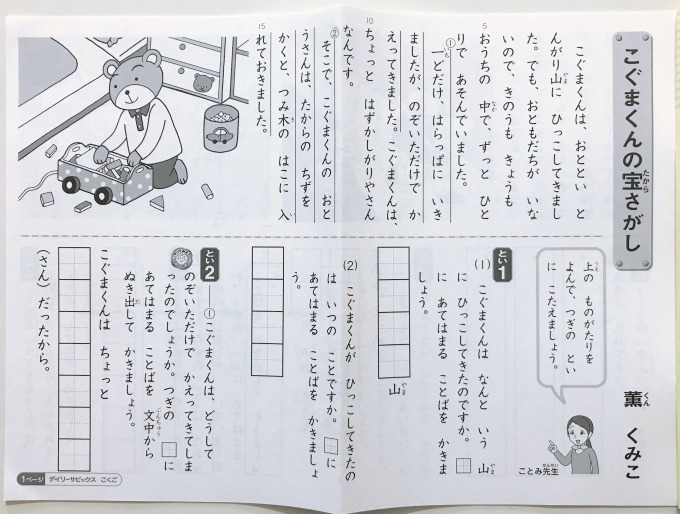 こぐまくんの宝さがし
たから
薫 くみこ
くん
こぐまくんは、おととい と
んがり山に ひっこしてきまし
やま
た。でも、おともだちが いな
いので、きのうも きょうも
5
おうちの 中で、ずっと ひと
なか
りで あそんでいました。
①一どだけ、はらっぱに いき
いち
ましたが、のぞいただけで か
えってきました。こぐまくんは、
10
ちょっと はずかしがりやさん
なんです。
②そこで、こぐまくんの おと
うさんは、たからの ちずを
かくと、つみ木の はこに 入
き
れておきました。
15
上の ものがたりを
うえ
よんで、つぎの とい
に こたえましょう。
ことみ先生
せんせい
とい1
(1) こぐまくんは なんと いう 山
やま
に ひっこしてきたのですか。□
に あてはまる ことばを かきま
しょう。
山
やま
(2) こぐまくんが ひっこしてきたの
は いつの ことですか。□に
あてはまる ことばを かきましょ
う。
とい2
――①こぐまくんは、どうして
のぞいただけで かえってきてしま
ったのでしょうか。つぎの □に
あてはまる ことばを 文中から
ぶんちゅう
ぬき出して かきましょう。
だ
こぐまくんは ちょっと
(さん)だったから。
1ページ デイリーサピックス こくご